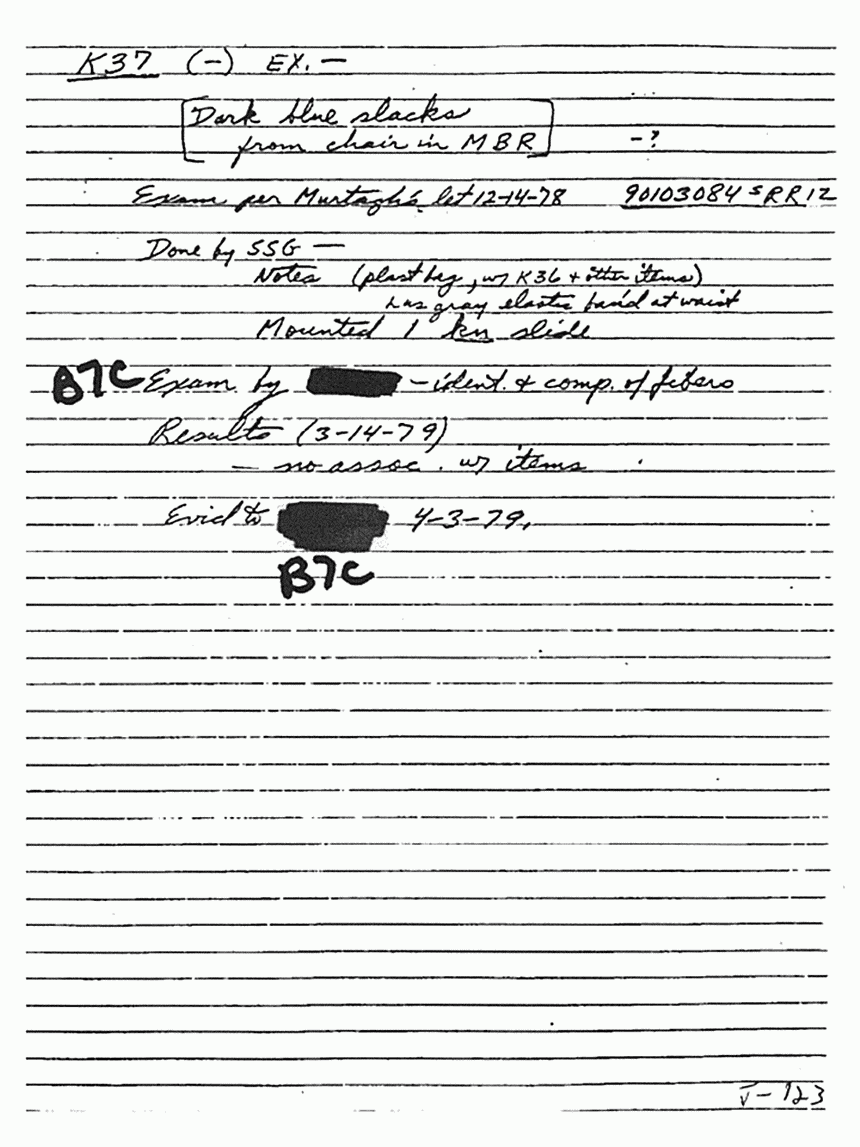 K37 (-) EX. —
Dark blue slacks
from chair in MBR -?
Exam per Murtagh's let 12-14-78 90103084 S RR 12
Done by SSG —
Notes (plast bag, w/ K36 + other items)
has gray elastic band at waist
Mounted 1 kn slide
B7C Exam by - ident. & comp. of fibers
Results (3-14-79)
— no assoc. w/ items
Evid to 4-3-79.
B7C
V-123